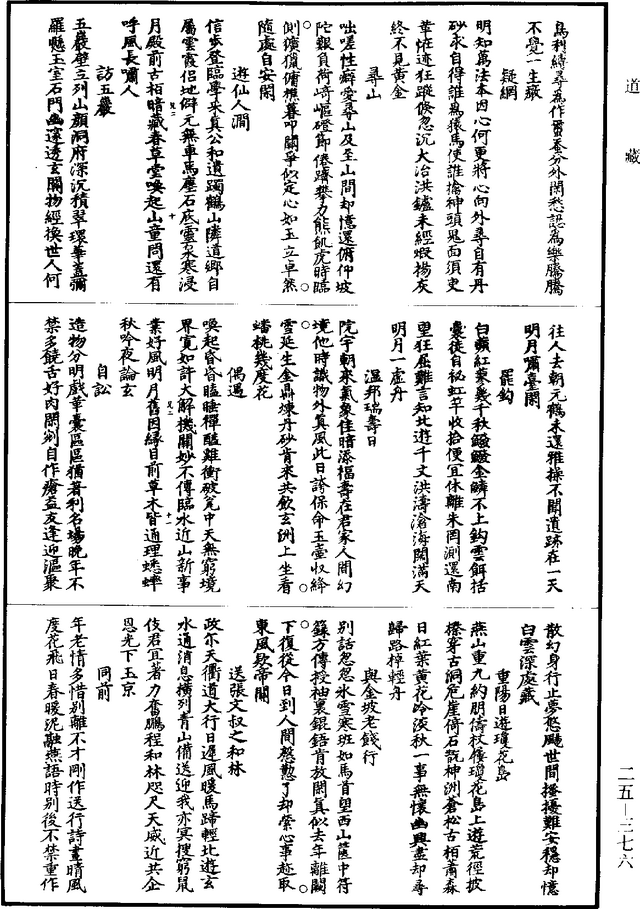 道藏
烏利縛尋為作黨蚕分外閑愁認為樂騰騰
不覺一生癡
疑網
明知萬法本因心何更將心向外尋自有丹
砂求自得誰鳥猿馬便誰擒神頭鬼面須臾
華怔迹狂蹤倏忽沉大冶洪鑪未經煅揚灰
終不見黃金
尋山
咄嗟性癖愛尋山及至山間却憶還俯仰坡
陀艱負荷﨑嶇磴節倦躋攀力熊飢虎時臨
側獷㺜傭樵暮叩關爭似定心如玉立卓然
隨處自安閑
遊仙人澗
信步登臨學采真公和遺躅鶴山隣道鄉自
屬雲霞侶地僻元無車馬塵石底靈泉寒浸
月殿前古栢暗藏春草堂喚起山童問還有
呼風長嘯人
訪五巖
五巖壁立列山顏洞府深沉積翠環華蓋彌
羅懸玉室石門幽邃透玄關物經換世人何
往人去朝元鶴未還雅操不聞遺跡在一天
明月嘯臺閑
罷鈎
白蘋紅蓼幾千秋鱍鱍金鱗不上鈎雲餌括
囊徒自秘虹竿收拾便宜休離朱罔測還南
望狂屈難言知北遊千丈洪濤滄海闊滿天
明月一虛舟
溫邦瑞壽日
院宇朝來氣象佳暗添福壽在君家人間幻
境他時識物外真風此日誇保命玉壺收絳
雪延生金鼎煉丹砂肯來共飲玄洲上坐看
蟠桃幾度花
偶過
喚起昏昏瞌睡禪醯雞衝破瓮中天無窮境
界寬如許大解機關妙不傳臨水近山新事
業好風明月舊因緣目前草木皆通理蟋蟀
秋吟夜論玄
自訟
造物分明戲革囊區區猶著利名場晚年不
禁多饒舌好肉閑剜自作瘡益友逢迎漚聚
散幻身行止夢悠颺世間擾擾難安穩却憶
白雲深處藏
重陽日遊瓊花島
燕山重九約朋儔杖屨瓊花島上遊荒徑披
榛穿古洞危崖倚石翫神洲蒼松古栢蕭森
日紅葉黃花冷淡秋一事無懷幽興盡却尋
歸路棹輕舟
與金坡老餞行
別話怱怱氷雪寒班如馬首望西山篋中符
籙方傳授袖裏銀鋙肯放閑真似去年離闕
下復從今日到人間慇懃了却縈心事趁取
東風欵帝關
送張文叔之和林
政亦天衢道大行日遲風暖馬蹄輕北遊玄
水通消息橫列青山備送迎我亦冥搜窮鼠
伎君宜著力奮鵬程和林咫尺天威近共企
恩光下玉京
同前
年老情多惜別離不才剛作送行詩晝晴風
度花飛日春暖泥融燕語時別後不禁重作
二五—三七六